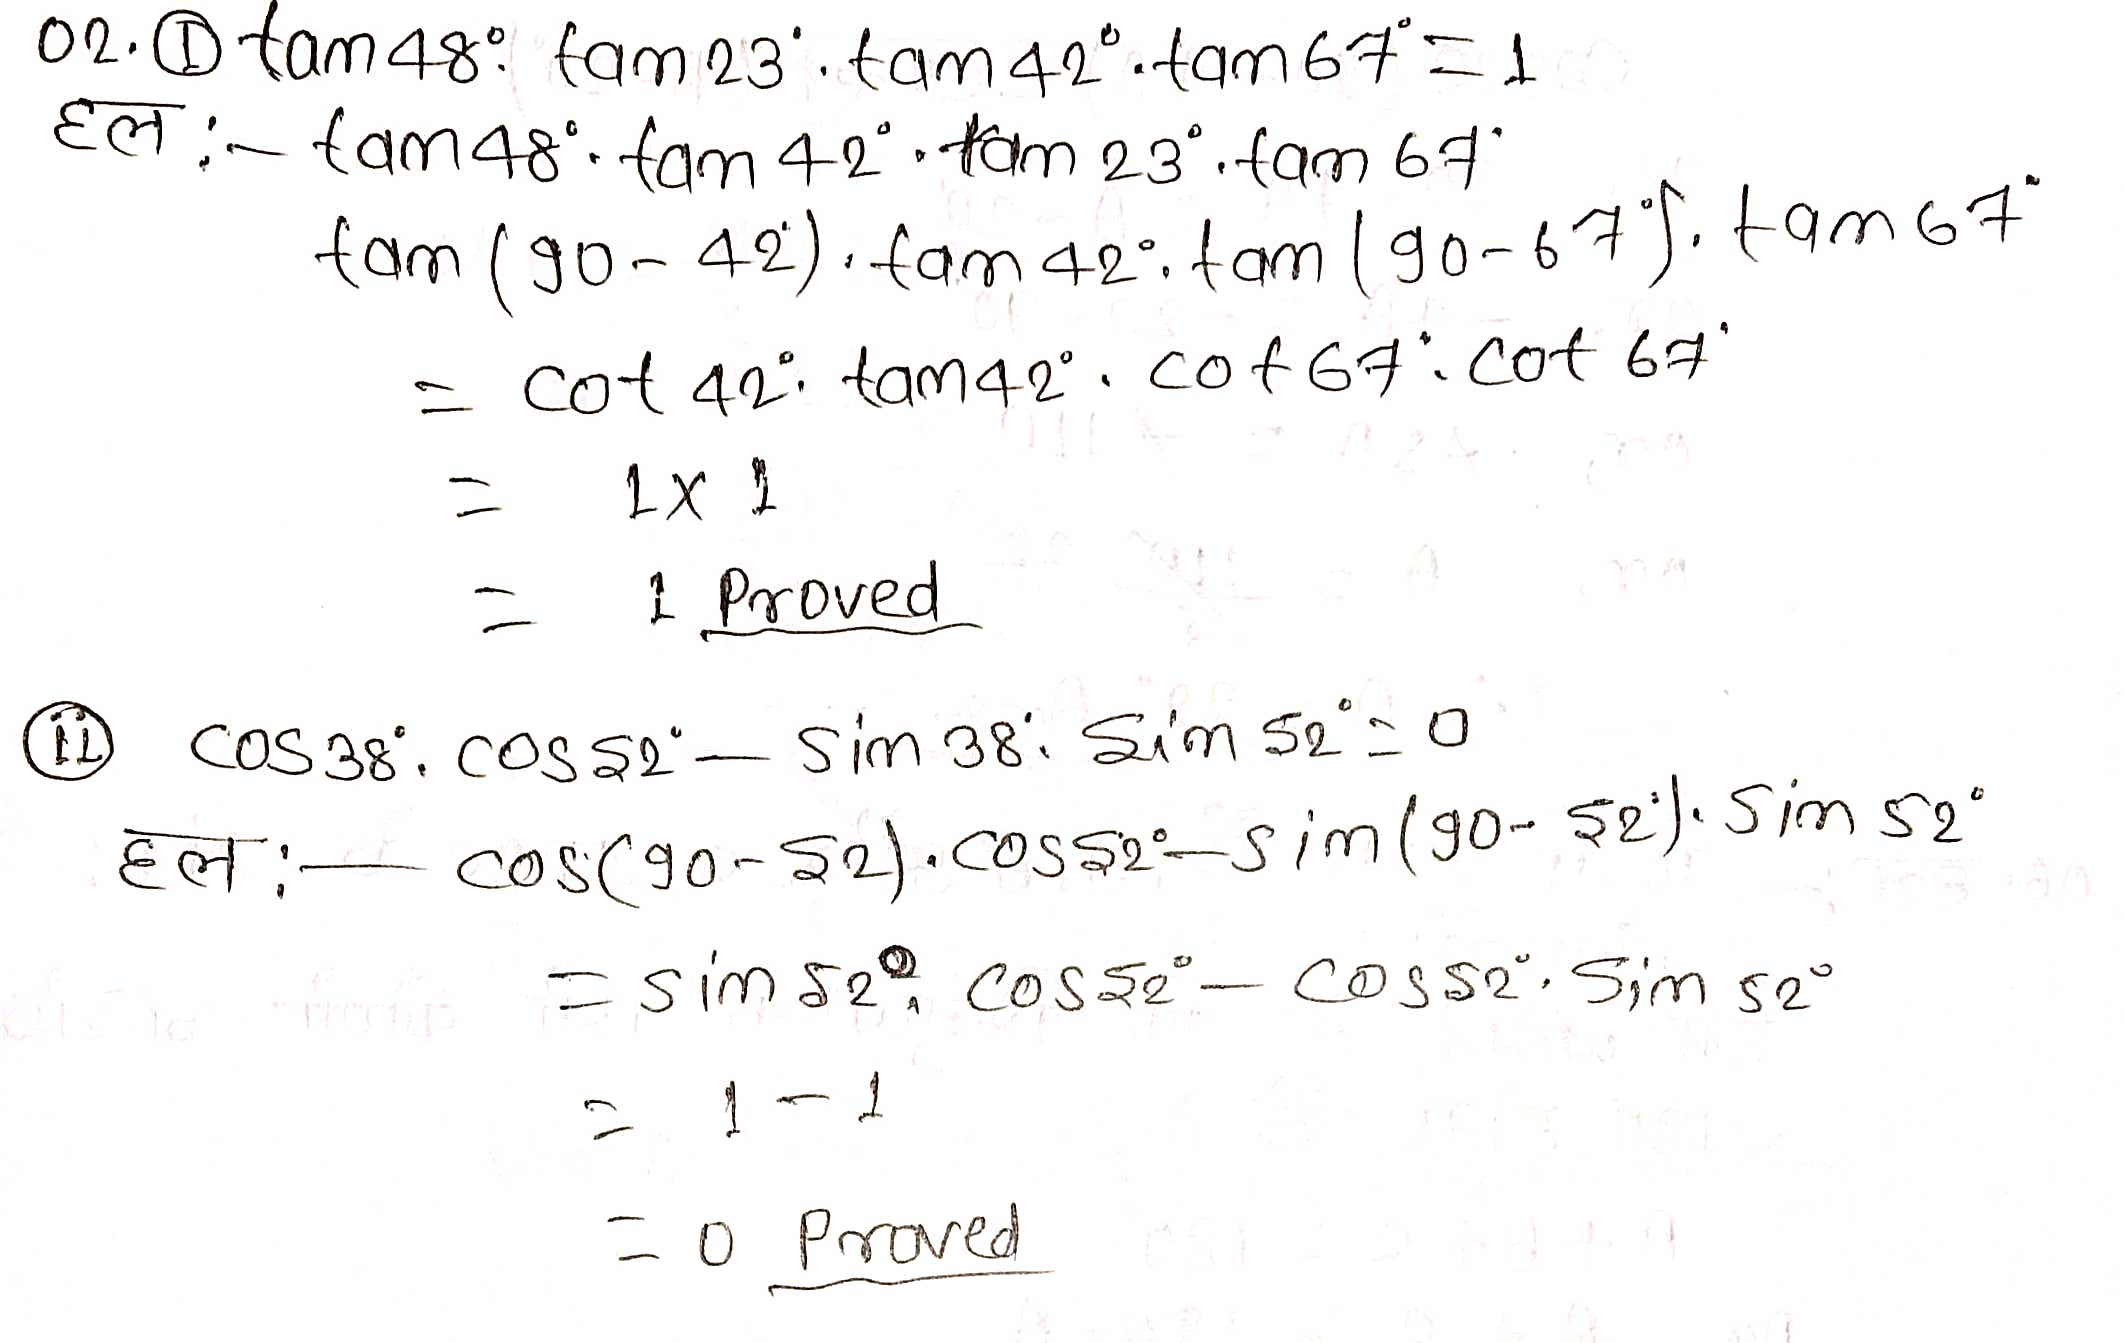 02. Ⓘ tan 48°. tan 23°. tan 42°. tan 67° = 1
हल :- tan 48°. tan 42°. tan 23°. tan 67°
tan (90 - 42°). tan 42°. tan (90 - 67°). tan 67°
= cot 42°. tan 42°. cot 67°. cot 67°
= 1 x 1
= 1 Proved
ⓘⓘ cos 38°. cos 52° - sin 38°. sin 52° = 0
हल :- cos (90 - 52). cos 52° - sin (90 - 52°). sin 52°
= sin 52°. cos 52° - cos 52°. sin 52°
= 1 - 1
= 0 Proved